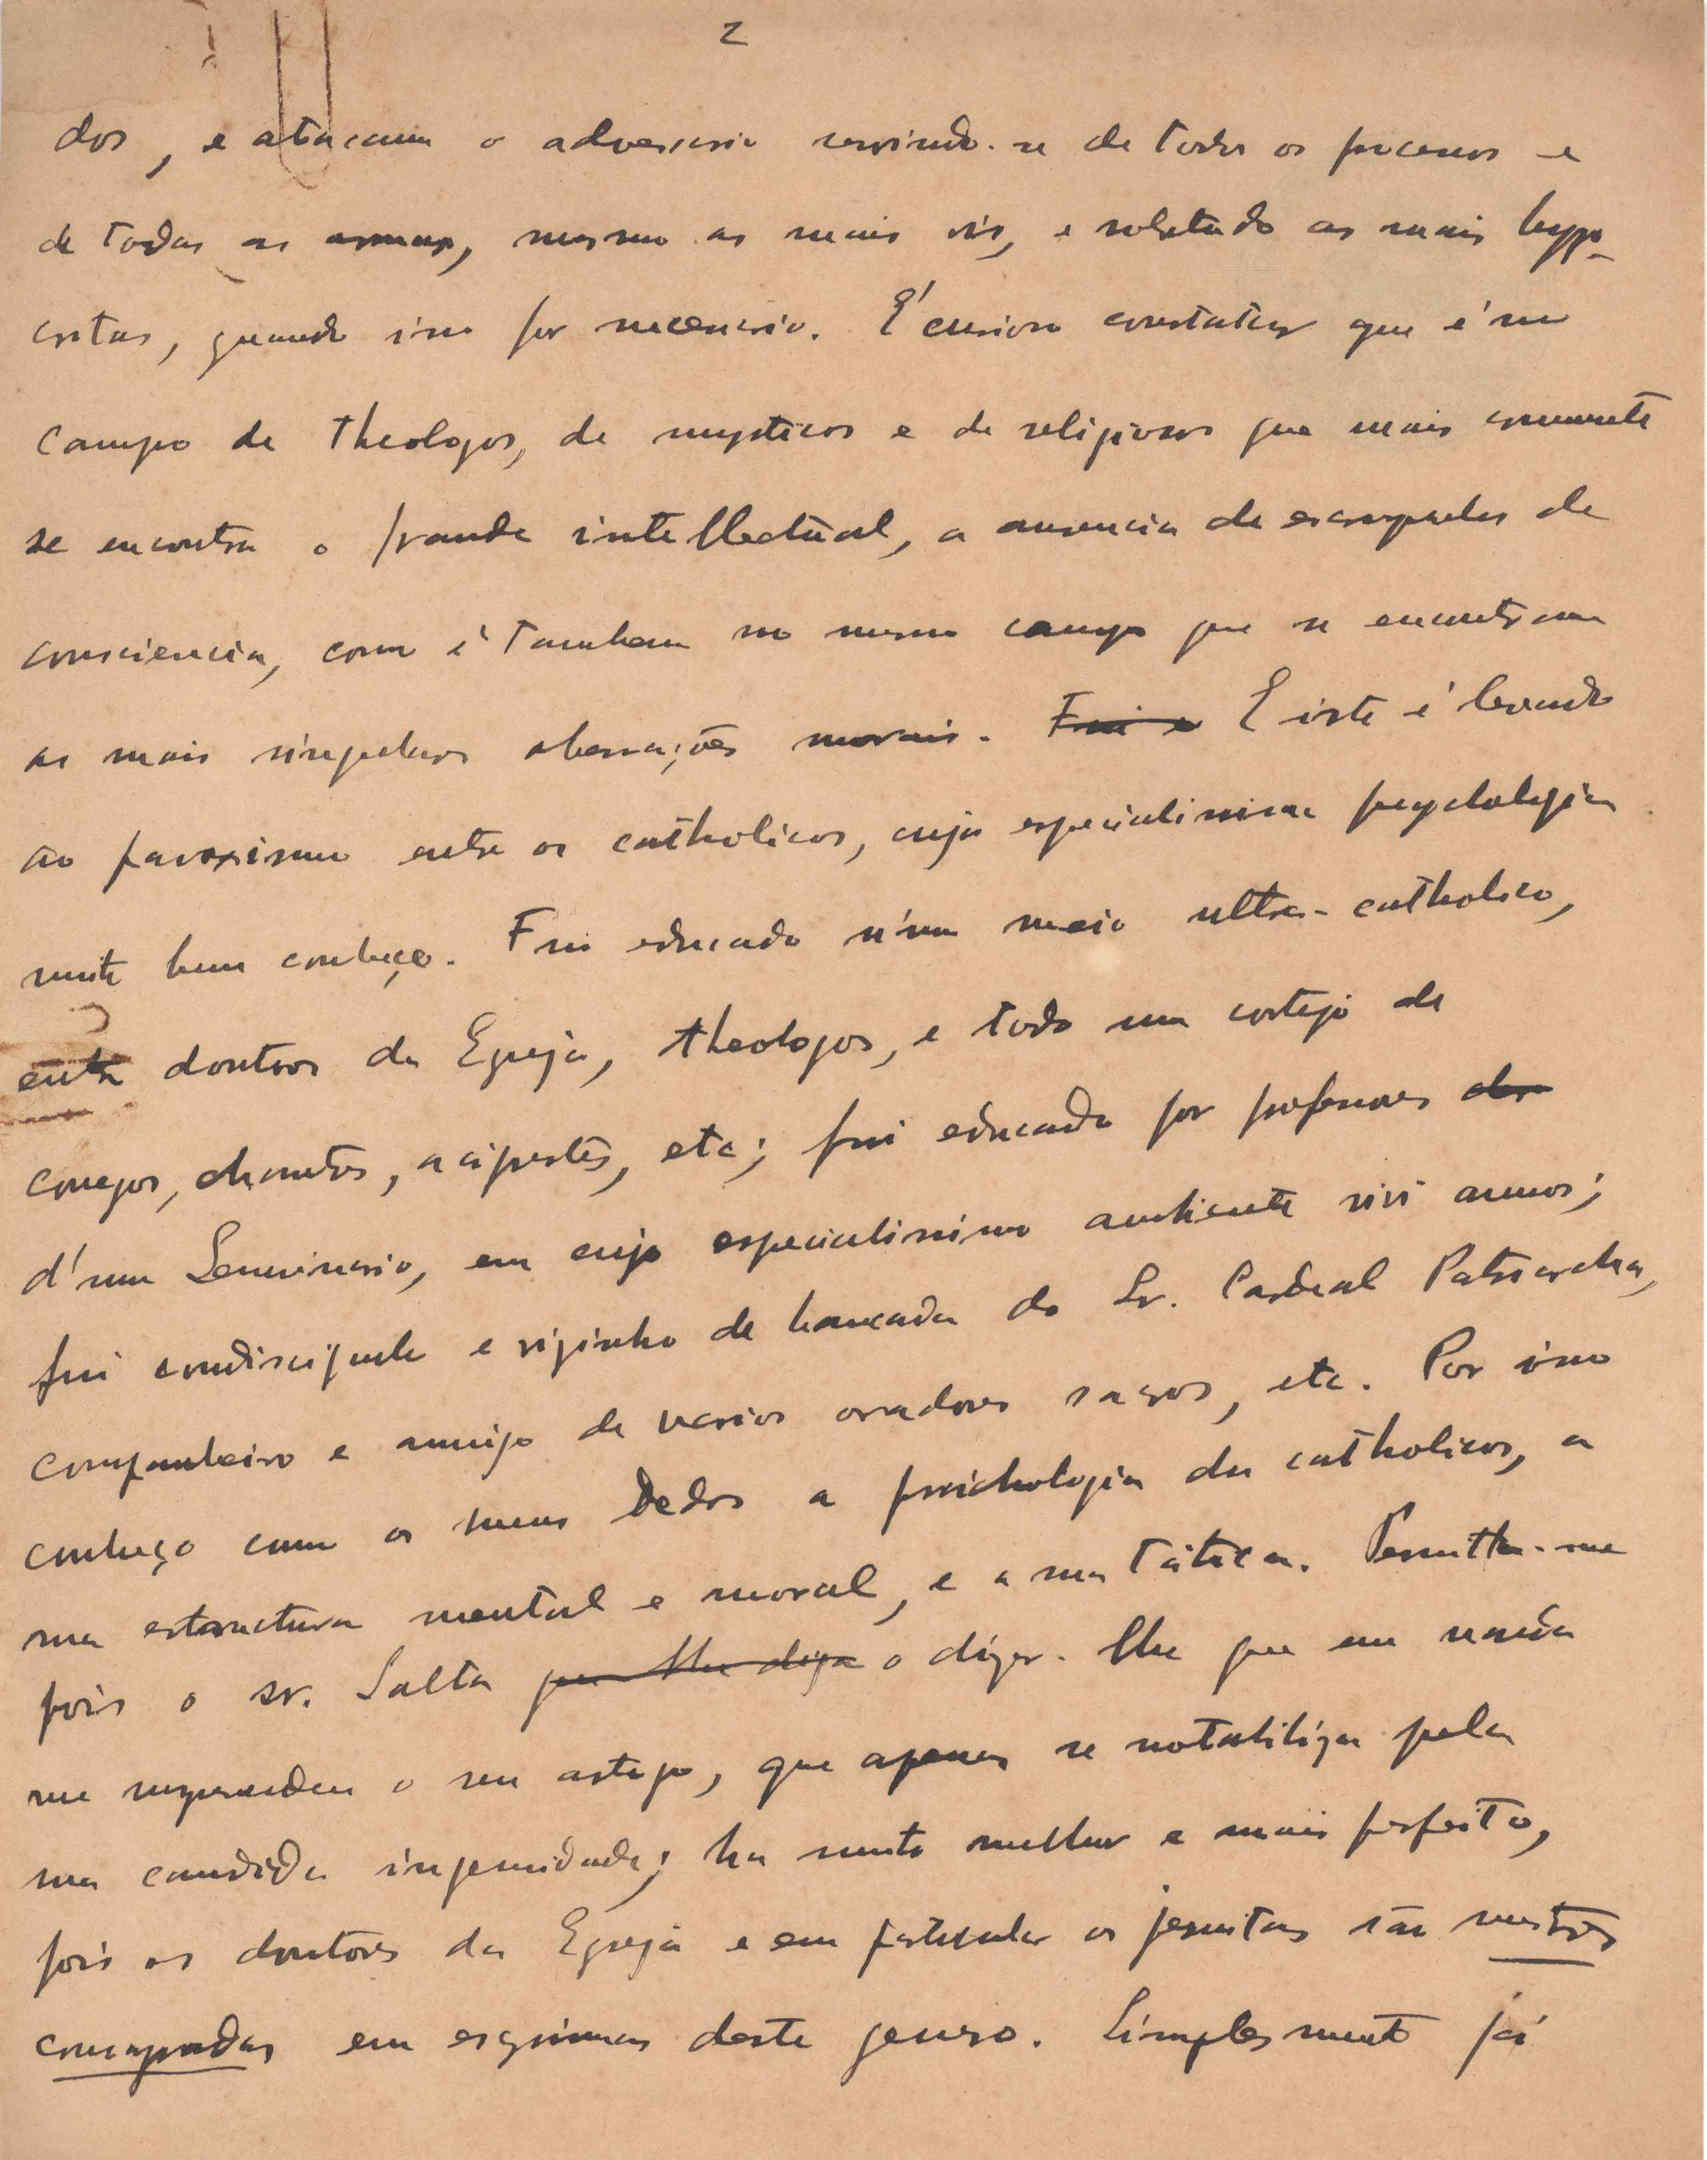 2
dos, e atacam o adversario servindo-se de todos os processos e
de todas as armas, mesmo as mais vis, e sobretudo as mais hypo-
critas, quando isso for necessario. É curioso constatar que é no
campo de theologos, de mysticos e de religiosos que mais commumente
se encontra a fraude intellectual, a ausencia de escrupulos de
consciencia, como é tambem no mesmo campo que se encontram
as mais singulares aberrações moraes. Fui e E isto é levado
ao paroxismo entre os catholicos, cuja especialissima psychologia
muito bem conheço. Fui educado n'um meio ultra-catholico,
entre doutores da Egreja, theologos, e todo um cortejo de
conegos, chantres, arciprestes, etc; fui educado por professores de
d'um Seminario, em cujo especialissimo ambiente vivi annos;
fui condiscipulo e visinho de bancada do Sr. Cardeal Patriarcha,
companheiro e amigo de varios oradores sacros, etc. Por isso
conheço como os meus dedos a psichologia dos catholicos, a
sua estructura mental e moral, e a sua tática. Permitta-me
pois o sr. Salta que lhe diga o dizer-lhe que em nada
me surpreendeu o seu artigo, que apenas se notabiliza pela
sua candida ingenuidade; ha muito melhor e mais perfeito,
pois os doutores da Egreja e em particular os jesuitas são mestres
consumados em esgrimas deste genero. Simplesmente já